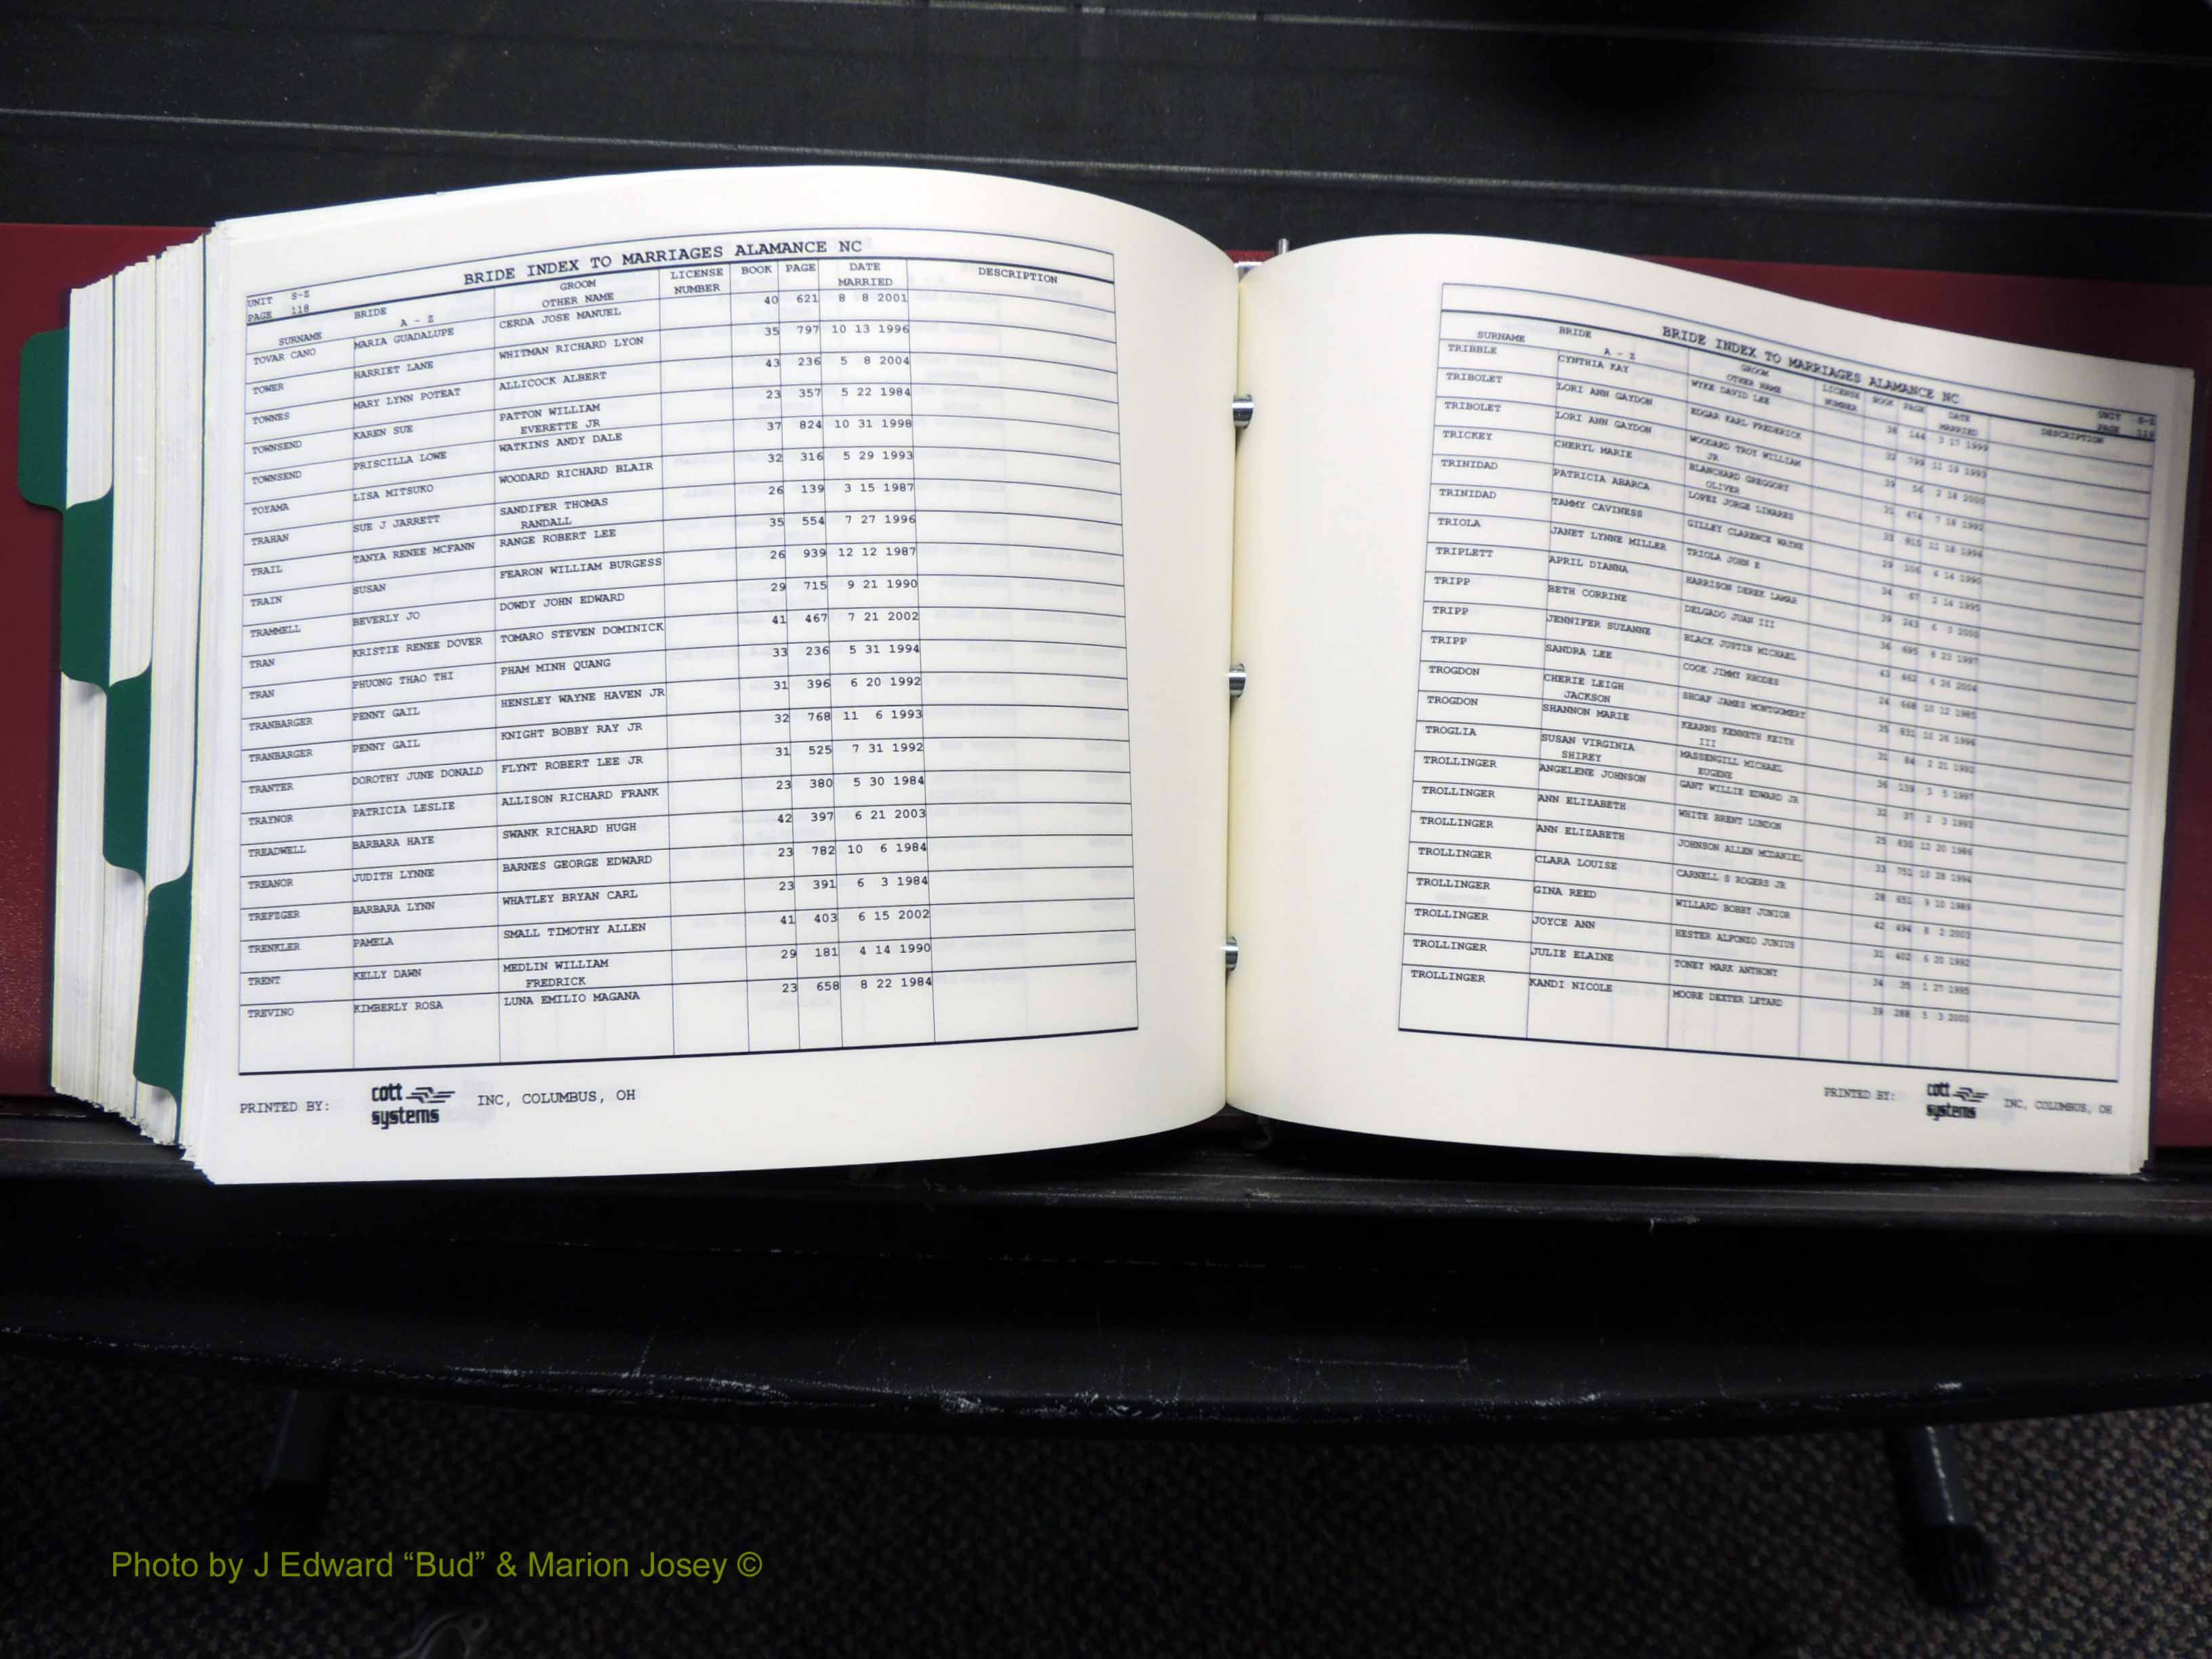 BRIDE INDEX TO MARRIAGES ALAMANCE NC
UNIT S-Z
PAGE 118
SURNAME BRIDE A - Z GROOM OTHER NAME LICENSE NUMBER BOOK PAGE DATE MARRIED DESCRIPTION
TOVAR CANO MARIA GUADALUPE CERDA JOSE MANUEL 40 621 8 8 2001
TOWER HARRIET LANE WHITMAN RICHARD LYON 35 797 10 13 1996
TOWNES MARY LYNN POTEAT ALLICOCK ALBERT 43 236 5 8 2004
TOWNSEND KAREN SUE PATTON WILLIAM 23 357 5 22 1984
EVERETTE JR
TOWNSEND PRISCILLA LOWE WATKINS ANDY DALE 37 824 10 31 1998
TOYAMA LISA MITSUKO WOODARD RICHARD BLAIR 32 316 5 29 1993
TRAHAN SUE J JARRETT SANDIFER THOMAS 26 139 3 15 1987
RANDALL
TRAIL TANYA RENEE MCFANN RANGE ROBERT LEE 35 554 7 27 1996
TRAIN SUSAN FEARON WILLIAM BURGESS 26 939 12 12 1987
TRAMMELL BEVERLY JO DOWDY JOHN EDWARD 29 715 9 21 1990
TRAN KRISTIE RENEE DOVER TOMARO STEVEN DOMINICK 41 467 7 21 2002
TRAN PHUONG THAO THI PHAM MINH QUANG 33 236 5 31 1994
TRANBARGER PENNY GAIL HENSLEY WAYNE HAVEN JR 31 396 6 20 1992
TRANBARGER PENNY GAIL KNIGHT BOBBY RAY JR 32 768 11 6 1993
TRANTER DOROTHY JUNE DONALD FLYNT ROBERT LEE JR 31 525 7 31 1992
TRAYNOR PATRICIA LESLIE ALLISON RICHARD FRANK 23 380 5 30 1984
TREADWELL BARBARA HAYE SWANK RICHARD HUGH 42 397 6 21 2003
TREANOR JUDITH LYNNE BARNES GEORGE EDWARD 23 782 10 6 1984
TREFZGER BARBARA LYNN WHATLEY BRYAN CARL 23 391 6 3 1984
TRENKLER PAMELA SMALL TIMOTHY ALLEN 41 403 6 15 2002
TRENT KELLY DAWN MEDLIN WILLIAM 29 181 4 14 1990
FREDRICK
TREVINO KIMBERLY ROSA LUNA EMILIO MAGANA 23 658 8 22 1984
PRINTED BY: cott systems INC, COLUMBUS, OH
BRIDE INDEX TO MARRIAGES ALAMANCE NC
UNIT S-Z
PAGE 119
SURNAME BRIDE A - Z GROOM OTHER NAME LICENSE NUMBER BOOK PAGE DATE MARRIED DESCRIPTION
TRIBBLE CYNTHIA KAY WYKE DAVID LEE 38 144 3 17 1999
TRIBOLET LORI ANN GAYDON EDGAR KARL FREDERICK 32 799 11 19 1993
TRIBOLET LORI ANN GAYDON WOODARD TROY WILLIAM 39 56 2 18 2000
JR
TRICKEY CHERYL MARIE BLANCHARD GREGORY 31 474 7 18 1992
OLIVER
TRINIDAD PATRICIA ABARCA LOPEZ JORGE LINARES 33 815 11 18 1994
TRINIDAD TAMMY CAVINESS GILLEY CLARENCE WAYNE 29 4 14 1990
TRIOLA JANET LYNNE MILLER TRIOLA JOHN E 34 67 2 14 1995
TRIPLETT APRIL DIANNA HARRISON DEREK LAMAR 39 243 6 3 2000
TRIPP BETH CORRINE DELGADO JUAN III 36 695 8 23 1997
TRIPP JENNIFER SUZANNE BLACK JUSTIN MICHAEL 43 462 6 26 2004
TRIPP SANDRA LEE COOK JIMMY RHODES 24 668 10 12 1985
TROGDON CHERIE LEIGH SHOAF JAMES MONTGOMERY 35 831 10 26 1996
JACKSON
TROGDON SHANNON MARIE KEARNS KENNETH KEITH 31 84 2 21 1992
III
TROGLIA SUSAN VIRGINIA MASSENGILL MICHAEL 36 139 3 5 1997
SHIREY EUGENE
TROLLINGER ANGELENE JOHNSON GANT WILLIE EDWARD JR 32 37 2 3 1993
TROLLINGER ANN ELIZABETH WHITE BRENT LUNDON 25 830 12 20 1986
TROLLINGER ANN ELIZABETH JOHNSON ALLEN MCDANIEL 33 752 10 28 1994
TROLLINGER CLARA LOUISE CARNELL S ROGERS JR 28 652 9 10 1989
TROLLINGER GINA REED WILLARD BOBBY JUNIOR 42 494 8 2 2003
TROLLINGER JOYCE ANN HESTER ALFONZO JUNIUS 31 402 6 20 1992
TROLLINGER JULIE ELAINE TONEY MARK ANTHONY 34 35 1 27 1995
TROLLINGER KANDI NICOLE MOORE DEXTER LETARD 39 288 5 3 2000
PRINTED BY: cott systems INC, COLUMBUS, OH
Photo by J Edward “Bud” & Marion Josey ©